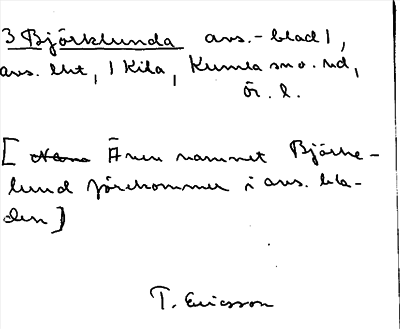 3 Björklunda avs.-blad 1,
avs. lht, 1 Kila, Kumla sn o. hd,
Ör. l.
[ Även namnet Björke-
lund förekommer i avs. bla-
den ]
T. Ericsson